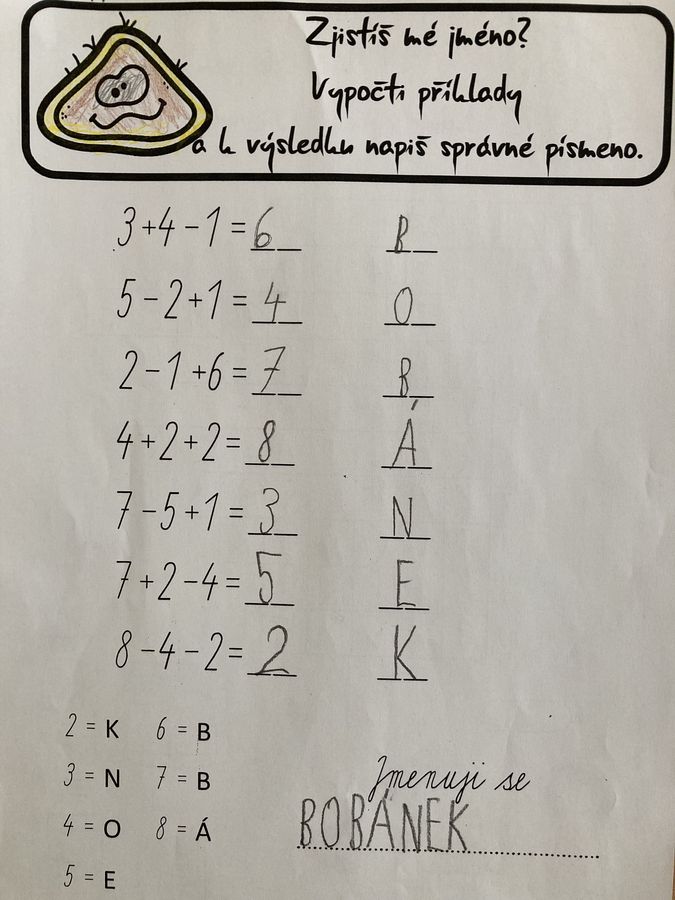 Zjistíš mé jméno?
Vypočti příklady
a k výsledku napiš správné písmeno.
3+4-1=6 B
5-2+1=4 O
2-1+6=7 B
4+2+2=8 Á
7-5+1=3 N
7+2-4=5 E
8-4-2=2 K
2 = K 6 = B
3 = N 7 = B
4 = O 8 = Á
5 = E
Jmenuji se
BOBÁNEK